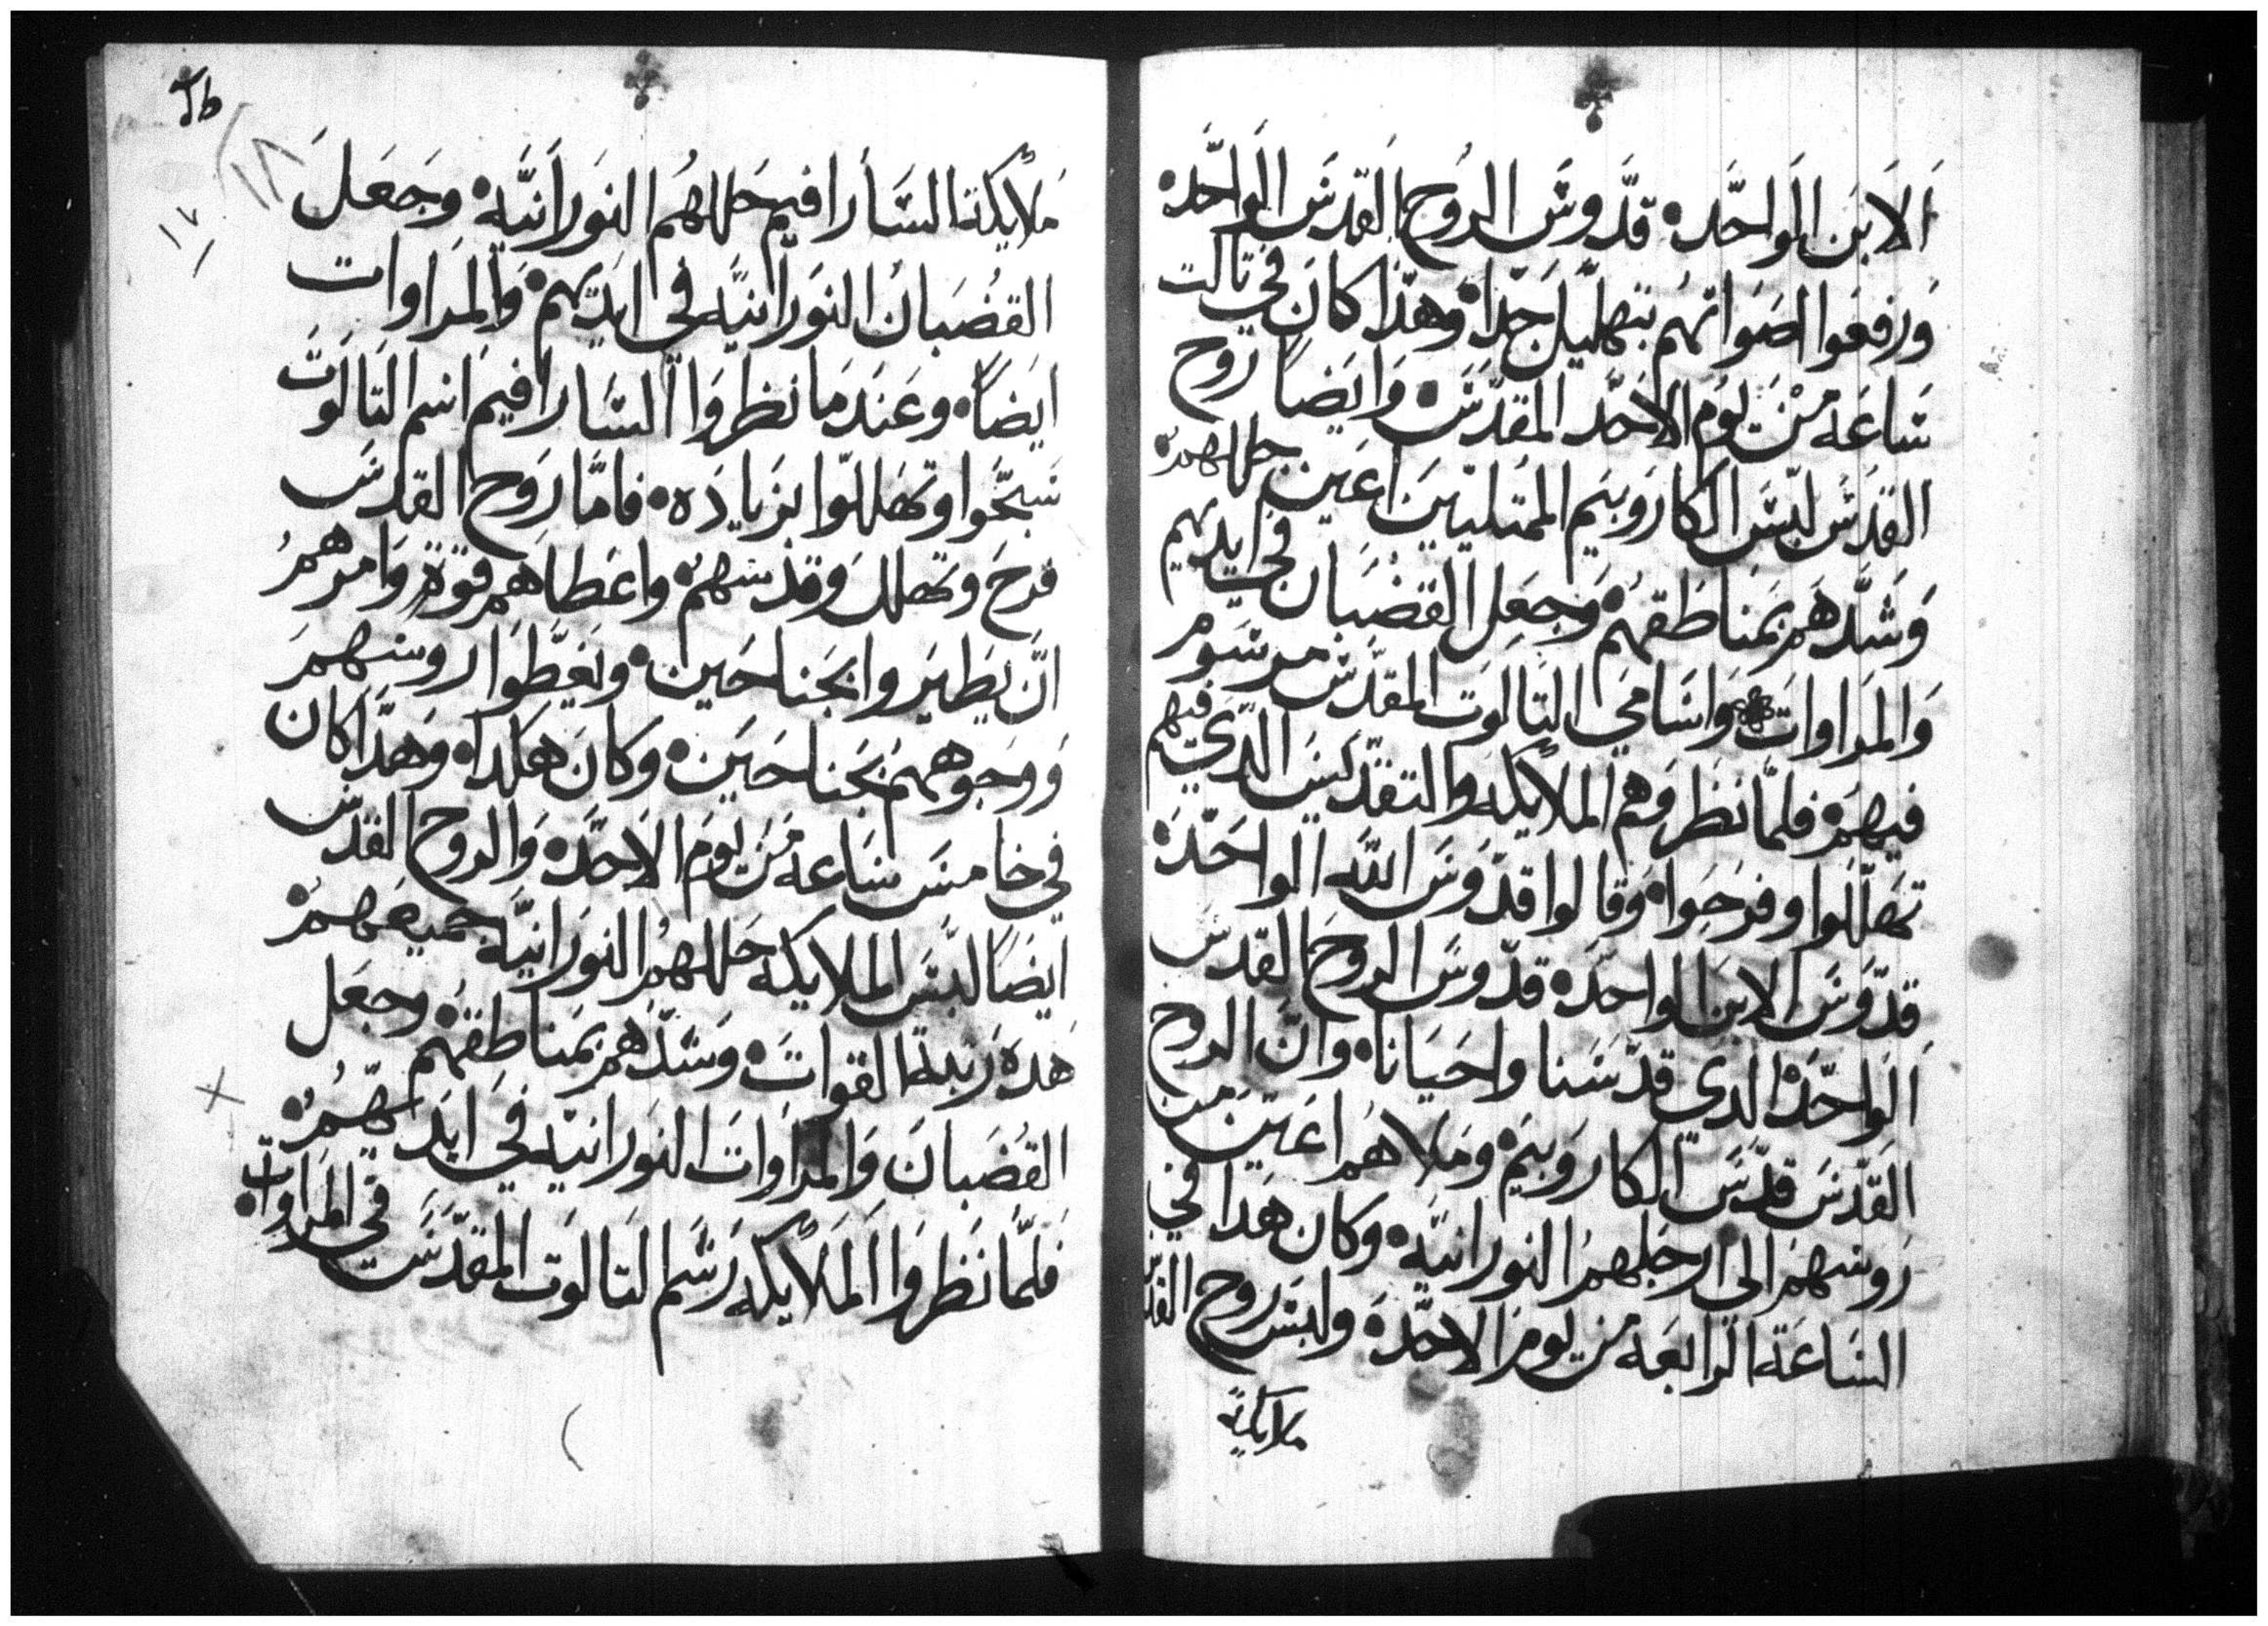 الابن الواحده قدوس الروح القدس الواحده
ورفعوا اصواتهم بتهليل جدا وهذا كان في تالت
ساعه من يوم الاحد المقدس وايضاً روح
القدس لبس الكاروبيم الممتليين اعين حللهم
وشدهم بمناطقهم وجعل القضبان في ايديهم
والمراوات واسامي التالوت المقدس مرسوم
فيهم فلما نظروهم الملايكه والتقديس الدي فيهم
تهللوا وفرحوا وقالوا قدوس الله الواحده
قدوس الابن الواحده قدوس الروح القدس
الواحده الدي قدسنا واحيانا وان الروح
القدس قدس الكاروبيم وملاهم اعين من
روسهم الى ارجلهم النورانيه وكان هدا في
الساعة الرابعه من يوم الاحده ولبس روح القدس
ملايكة
١٨
١٧
ملايكة السارافيم حللهم النورانيه وجعل
القضبان النورانيه في ايديهم والمراوات
ايضاً وعندما نظروا السارافيم اسم التالوت
سبحوا وتهللوا بزياده فاما روح القدس
فرح وتهلل وقدسهم واعطاهم قوة وامرهم
ان يطيروا بجناحين ويغطوا روسهم
ووجوههم بجناحين وكان هكدا وهدا كان
في خامس ساعه من يوم الاحده والروح القدس
ايضاً لبس الملايكه حللهم النورانيه جميعهم
هده رتبة القوات وشدهم بمناطقهم وجعل
القضبان والمراوات النورانيه في ايديهم
فلما نظروا الملايكه رسم التالوت المقدس في المراوات